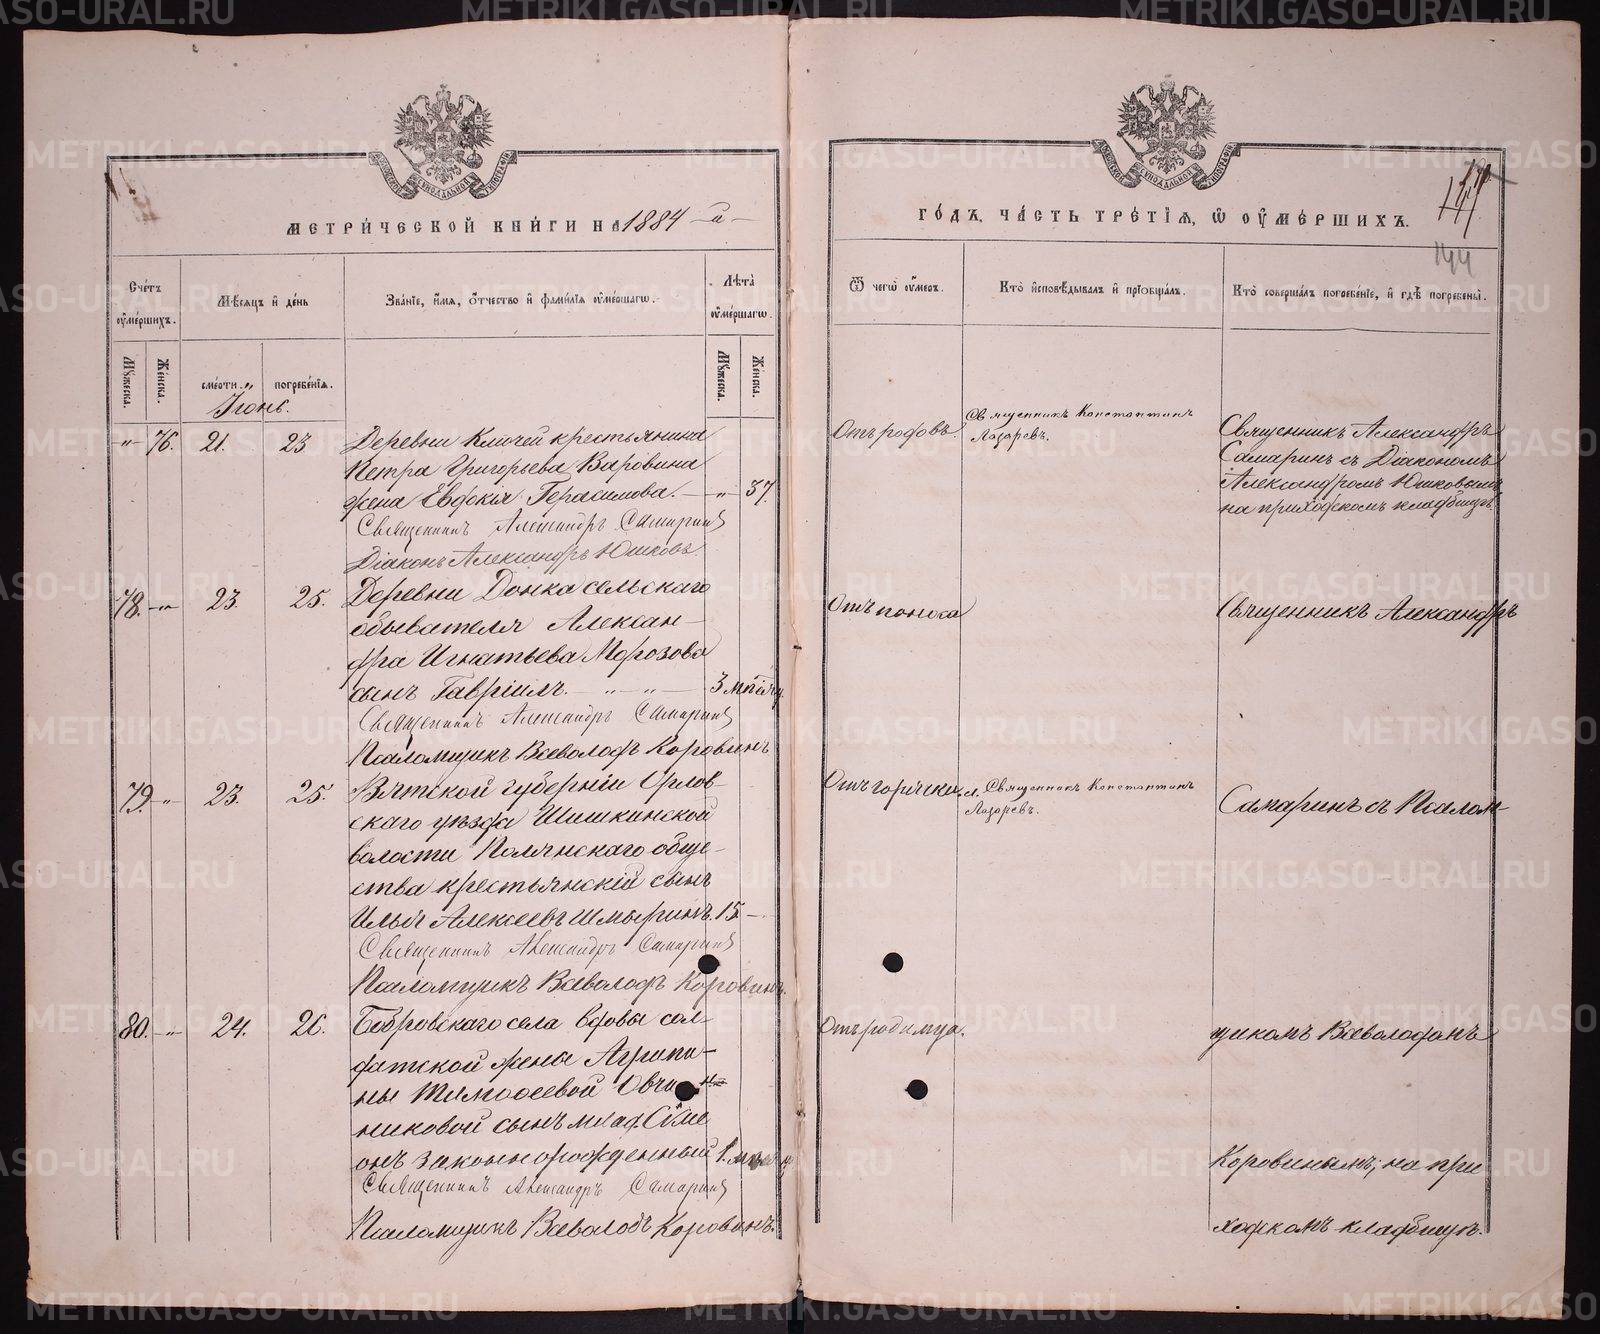 МЕТРИ́ЧЕСКОЙ КНИ́ГИ НА 1884 -й-
Сче́тъ оу҆ме́ршихъ.
Мѣ́сяцъ и҆ де́нь
Зва́нїе, и҆́мя, ѻ҆́тчество и҆ фами́лїя оу҆ме́ршагѡ.
Лѣ́та оу҆ме́ршагѡ.
Мꙋ́жеска.
Же́нска.
сме́рти.
погребе́нїя.
Мꙋ́жеска.
Же́нска.
Іюнь.
" 76. 21. 23 Деревни Ключей крестьянина
Петра Григорьева Варовина
жена Евдокія Герасимова. — " — 37.
Священникъ Александръ Самаринъ
Діаконъ Александръ Юшковъ.
78. — " — 23. 25. Деревни Донка сельскаго
обывателя Алексан-
дра Игнатьева Морозова
сынъ Гавріилъ. — " — " — 3 мѣсяц.
Священникъ Александръ Самаринъ
Псаломщикъ Всеволодъ Коровинъ
79. — " — 23. 25. Вятской губерніи Орлов-
скаго уѣзда Шишкинской
волости Полянскаго обще-
ства крестьянскій сынъ
Илья Алексеевъ Шмыринъ. 15 —
Священникъ Александръ Самаринъ
Псаломщикъ Всеволодъ Коровинъ.
80. — " — 24. 26. Бобровскаго села вдовы сол-
датской жены Агрипи-
ны Тимофеевой Овчин-
никовой сынъ млад. Сѵме
онъ законнорожденный 1. мѣсяц
Священникъ Александръ Самаринъ
Псаломщикъ Всеволодъ Коровинъ.
ГО́ДЪ, ЧА́СТЬ ТРЕ́ТІЯ, Ѡ҆ ОУ҆МЕ́РШИХЪ.
144
Ѿ чегѡ̀ оу҆́меръ.
Кто̀ и҆сповѣ́дывалъ и҆ прїѻбща́лъ.
Кто̀ соверша́лъ погребе́нїе, и҆ гдѣ̀ погребены̀.
Отъ родовъ.
Священникъ Константинъ
Лазаревъ.
Священникъ Александръ
Самаринъ съ Діакономъ
Александромъ Юшковымъ
на приходскомъ кладбищѣ.
Отъ поноса
Священникъ Александръ
Отъ горячки.
Священникъ Константинъ
Лазаревъ.
Самаринъ съ Псалом-
Отъ родимца.
щикомъ Всеволодомъ
Коровинымъ; на при
ходскомъ кладбищѣ.
METRIKI.GASO-URAL.RU